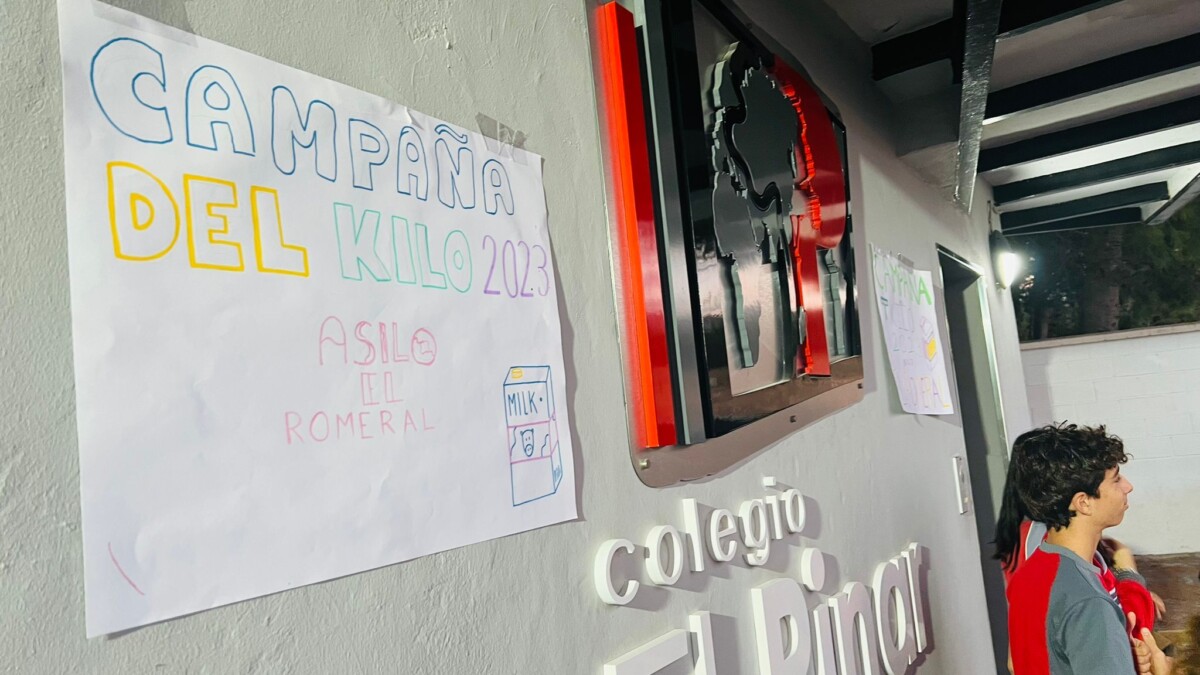 CAMPAÑA
DEL KILO 2023
ASILO
EL
ROMERAL
MILK
colegio
El Pinar
CAMPAÑA